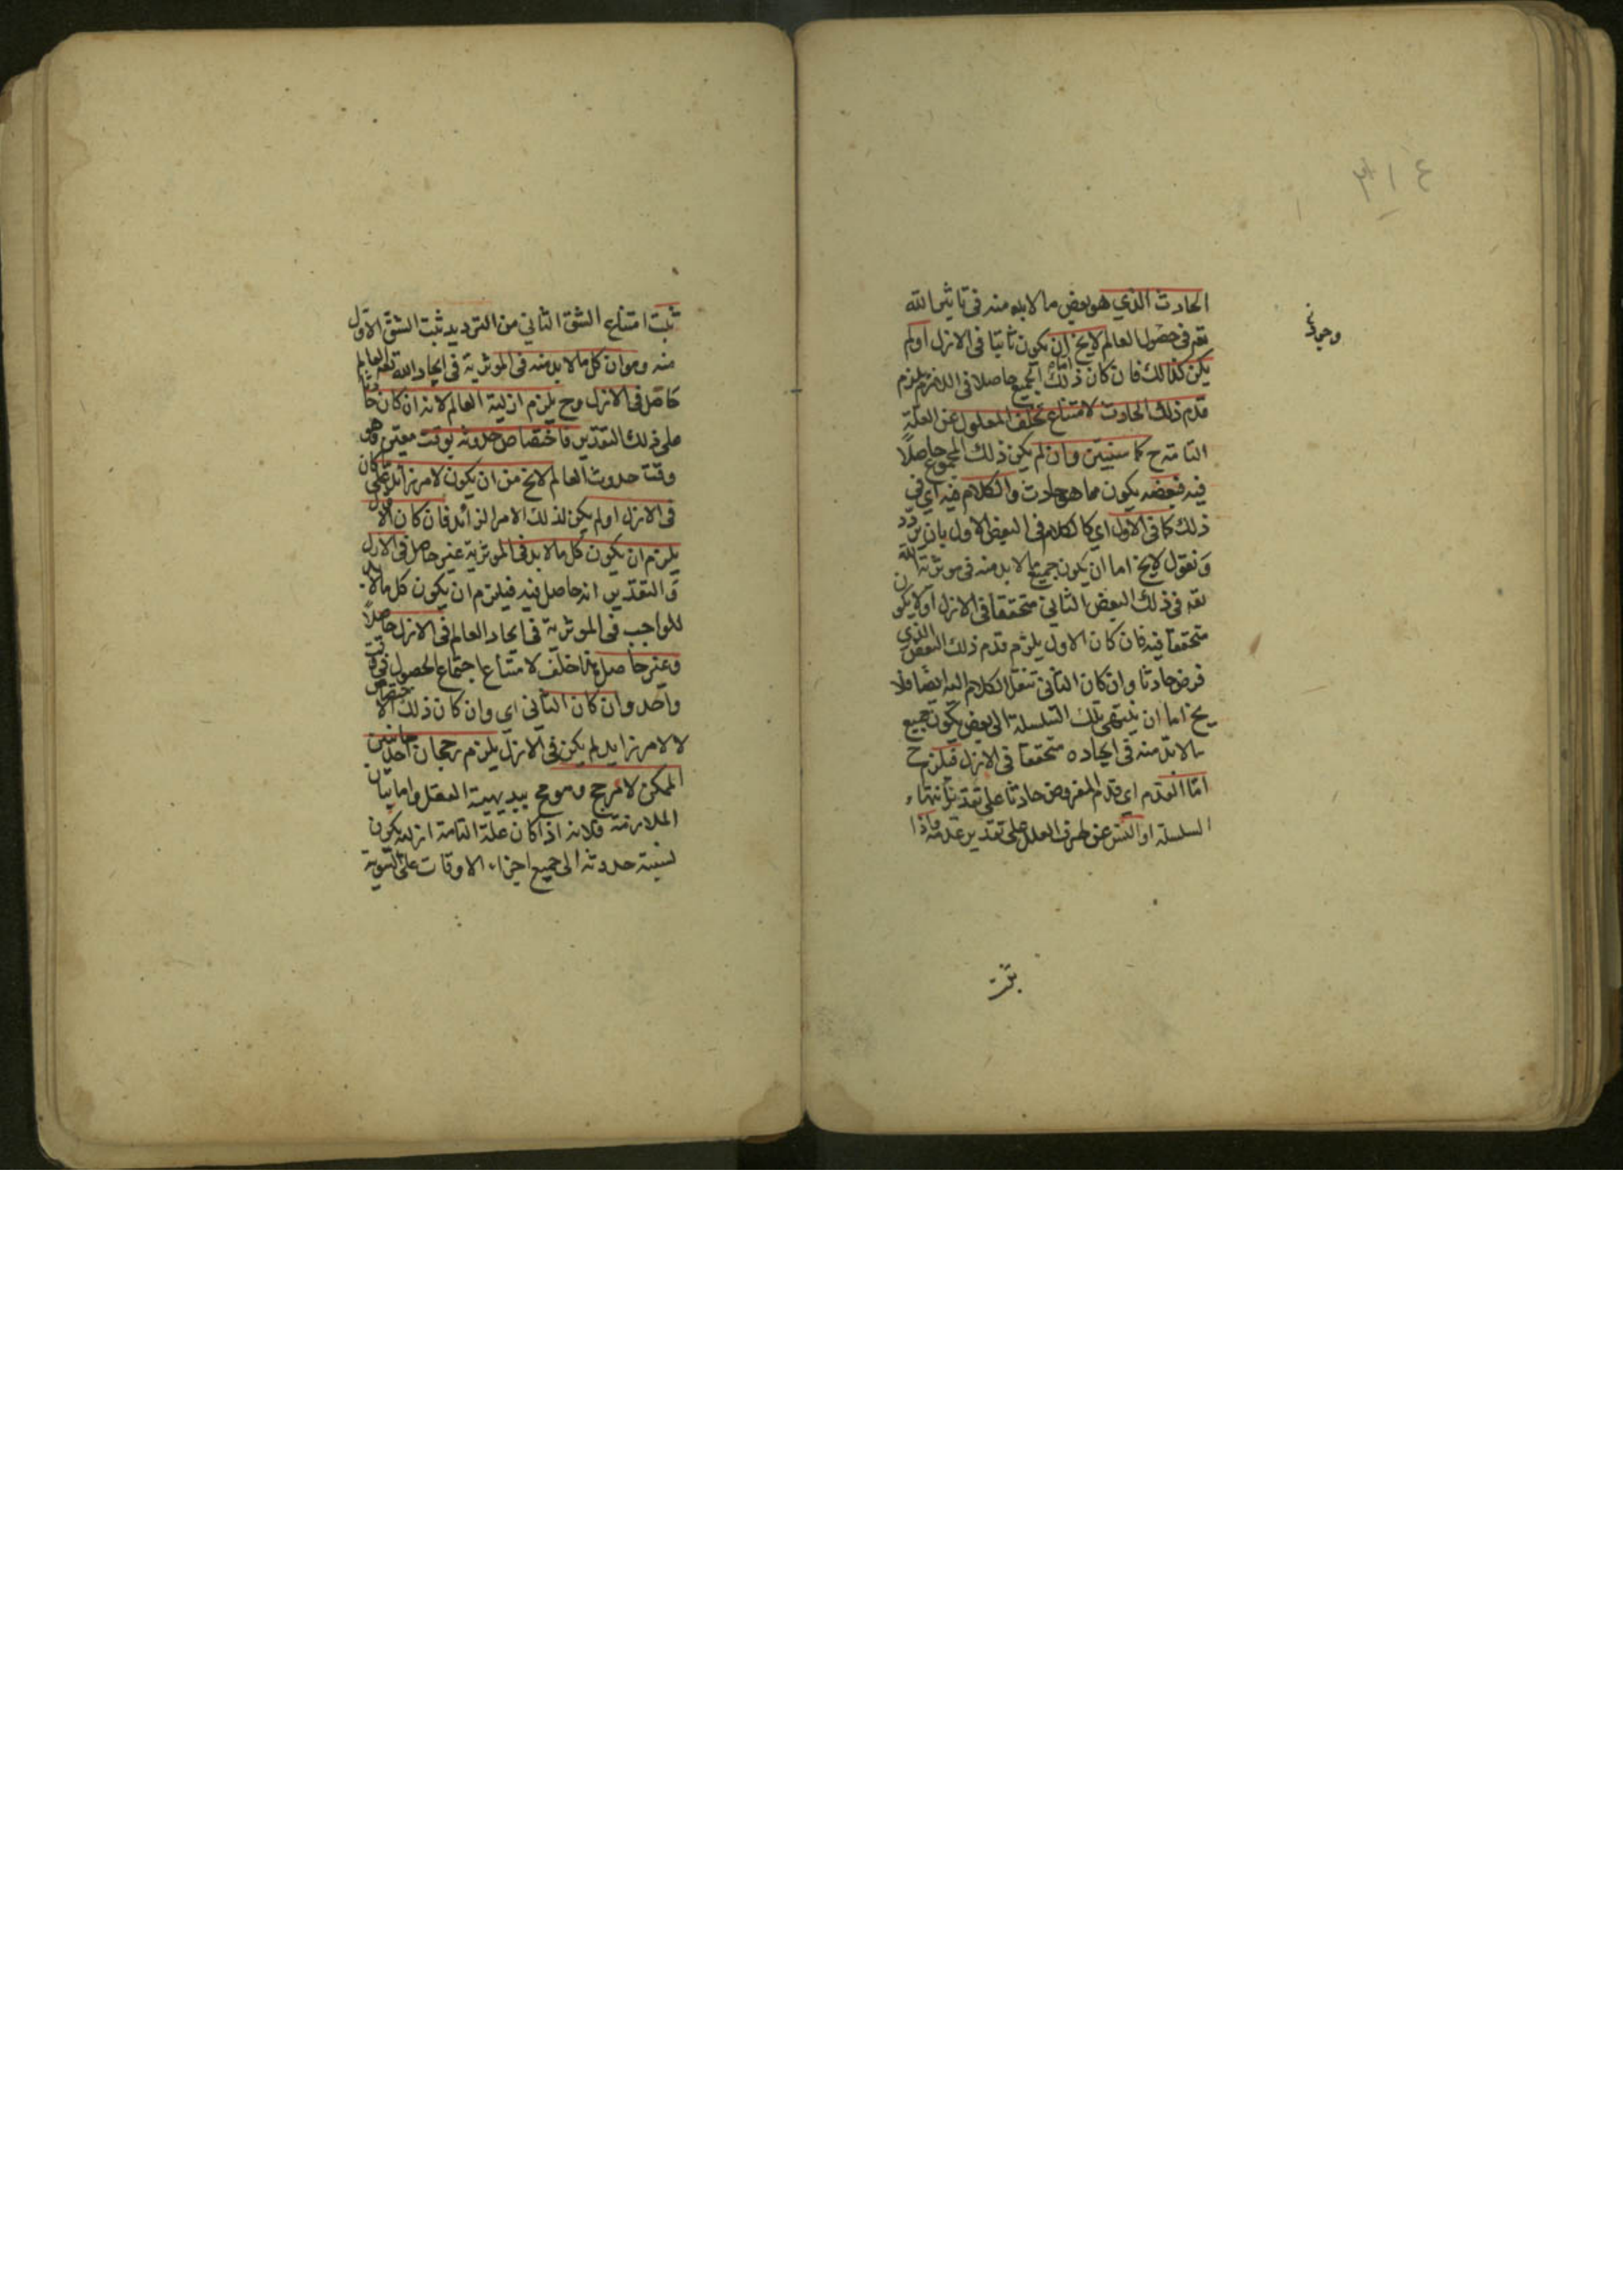 ٣١٤
وجوده
الحادث الذي هو بعض ما لابد منه فى تاثير الله
تعه فى حصول العالم لا يخ ان يكون ثابتا فى الازل او لم
يكن كذلك فان كان ذلك الجميع حاصلا فى الازل يلزم
قدم ذلك الحادث لامتناع تخلف المعلول عن العلة
التامة ح كما سنبين وان لم يكن ذلك المجموع حاصلاً
فيه فبعضه يكون مما هو حادث والكلام فيه اي فى
ذلك كما فى الاول اي كالكلام فى البعض الاول بان نردد
ونقول لا يخ اما ان يكون جميع ما لابد منه فى موثرية الله
تعه فى ذلك البعض الثانى متحققا فى الازل او لا يكون
متحققا فيه فان كان الاول يلزم قدم ذلك البعض الذي
فرض حادثا وان كان الثانى ننقل الكلام اليه ايضا فلا
يخ اما ان ينتهى تلك السلسلة الى بعض يكون جميع
ما لابد منه فى ايجاده متحققا فى الازل فيلزم ح
امّا القدم اى قدم المفروض حادثا على تقدير انتهاء
السلسلة او التس عن طرف العلل على تقدير عدمه واذا
ثبت
ثبت امتناع الشق الثاني من الترديد ثبت الشق الاول
منه وهو ان كل ما لابد منه فى الموثرية فى ايجاد الله تعه العالم
حاصل فى الازل وح يلزم ازلية العالم لانه ان كان حادثا
على ذلك التقدير فاختصاص حدوثه بوقت معين وهو
وقت حدوث العالم لا يخ من ان يكون لامر زائد على ما كان
فى الازل او لم يكن لذلك الامر الزائد فان كان الاول
يلزم ان يكون كل ما لابد فى الموثرية غير حاصل فى الازل
والتقدير انه حاصل فيه فيلزم ان يكون كل ما لابد
للواجب فى الموثرية فى ايجاد العالم فى الازل حاصلاً
وغير حاصل هذا خلف لامتناع اجتماع الحصول فى وقت
واحد وان كان الثانى اي وان كان ذلك الاختصاص
لا لامر زايد لم يكن فى الازل يلزم رجحان احد جانبين
الممكن لا لمرجح وهو مح ببديهية العقل واما بيان
الملازمة فلانه اذا كان علة التامة ازلية يكون
نسبة حدوثه الى جميع اجزاء الاوقات على السوية